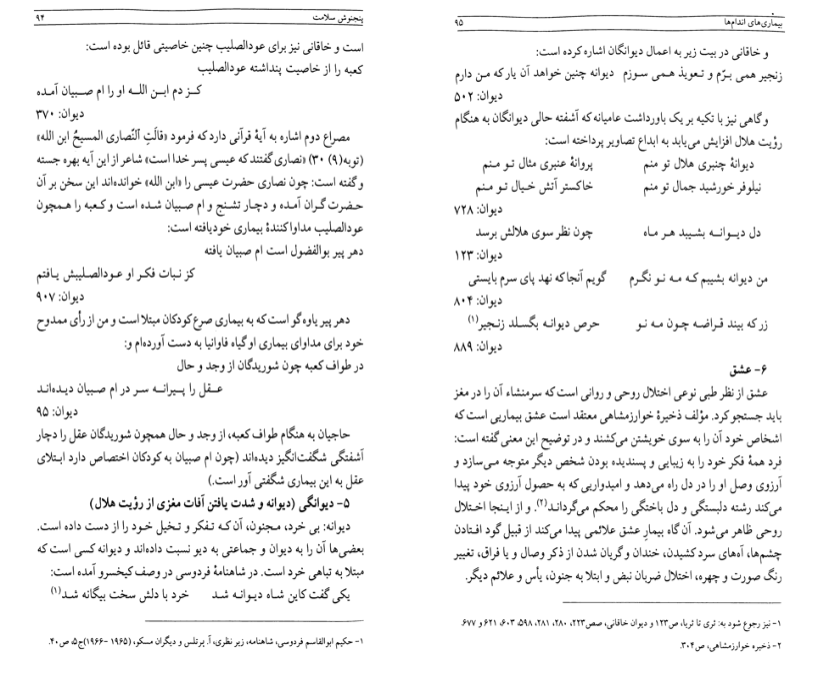 پنجنوش سلامت ۹۴
است و خاقانی نیز برای عودالصلیب چنین خاصیتی قائل بوده است:
کعبه را از خاصیت پنداشته عودالصلیب
کـز دم ابـن اللـه او را ام صـبیان آمـده
دیوان: ۳۷۰
مصراع دوم اشاره به آیهٔ قرآنی دارد که فرمود «قالَتِ النَّصاری المسیحُ ابن الله»
(توبه(۹) ۳۰) «نصاری گفتند که عیسی پسر خدا است» شاعر از این آیه بهره جسته
و گفته است: چون نصاری حضرت عیسی را «ابن الله» خوانده‌اند این سخن بر آن
حضرت گران آمده و دچار تشنج و ام صبیان شده است و کعبه را همچون
عودالصلیب مداوا کنندهٔ بیماری خودیافته است:
دهر پیر بوالفضول است ام صبیان یافته
کز نبات فکـر او عـودالصلیبش یـافتم
دیوان: ۹۰۷
دهر پیر یاوه‌گو است که به بیماری صرع کودکان مبتلا است و من از رأی ممدوح
خود برای مداوای بیماری او گیاه فاوانیا به دست آورده‌ام و:
در طواف کعبه چون شوریدگان از وجد و حال
عـقل را پـیرانـه سـر در ام صـبیان دیـده‌انـد
دیوان: ۹۵
حاجیان به هنگام طواف کعبه، از وجد و حال همچون شوریدگان عقل را دچار
آشفتگی شگفت‌انگیز دیده‌اند (چون ام صبیان به کودکان اختصاص دارد ابتلای
عقل به این بیماری شگفتی آور است.)
۵- دیوانگی (دیوانه و شدت یافتن آفات مغزی از رؤیت هلال)
دیوانه: بی خرد، مجنون، آن که تفکر و تخیل خود را از دست داده است.
بعضی‌ها آن را به دیوان و جماعتی به دیو نسبت داده‌اند و دیوانه کسی است که
مبتلا به تباهی خرد است. در شاهنامهٔ فردوسی در وصف کیخسرو آمده است:
یکی گفت کاین شاه دیـوانه شـد خرد با دلش سخت بیگانه شـد(۱)
۱- حکیم ابوالقاسم فردوسی، شاهنامه، زیر نظری، آ. برتلس و دیگران مسکو، (۱۹۶۵ -۱۹۶۶)ج۵، ص۴۰.
بیماری‌های اندام‌ها ۹۵
و خاقانی در بیت زیر به اعمال دیوانگان اشاره کرده است:
زنجیر همی برّم و تـعویذ هـمی سـوزم دیوانه چنین خواهد آن یار که مـن دارم
دیوان: ۵۰۲
و گاهی نیز با تکیه بر یک باورداشت عامیانه که آشفته حالی دیوانگان به هنگام
رؤیت هلال افزایش می‌یابد به ابداع تصاویر پرداخته است:
دیوانهٔ چنبری هلال تو منم پروانهٔ عنبری مثال تـو مـنم
نیلوفر خورشید جمال تو منم خاکستر آتش خـیال تـو مـنم
دیوان: ۷۲۸
دل دیـوانـه بشیبد هـر مـاه چون نظر سوی هلالش برسد
دیوان: ۱۲۳
من دیوانه بشیبم کـه مـه نـو نگـرم گویم آنجا که نهد پای سرم بایستی
دیوان: ۸۰۴
زر که بیند قـراضـه چـون مـه نـو حرص دیوانـه بگسلد زنـجیر(۱)
دیوان: ۸۸۹
۶- عشق
عشق از نظر طبی نوعی اختلال روحی و روانی است که سرمنشاء آن را در مغز
باید جستجو کرد. مؤلف ذخیرهٔ خوارزمشاهی معتقد است عشق بیماریی است که
اشخاص خود آن را به سوی خویشتن می‌کشند و در توضیح این معنی گفته است:
فرد همهٔ فکر خود را به زیبایی و پسندیده بودن شخص دیگر متوجه می‌سازد و
آرزوی وصل او را در دل راه می‌دهد و امیدواریی که به حصول آرزوی خود پیدا
می‌کند رشته دلبستگی و دل باختگی را محکم می‌گردانـد(۲). و از اینجا اخـتلال
روحی ظاهر می‌شود. آن گاه بیمار عشق علائمی پیدا می‌کند از قبیل گود افـتادن
چشم‌ها، آه‌های سرد کشیدن، خندان و گریان شدن از ذکر وصال و یا فراق، تغییر
رنگ صورت و چهره، اختلال ضربان نبض و ابتلا به جنون، یأس و علائم دیگر.
۱- نیز رجوع شود به: ثری تا ثریا، ص۱۲۳ و دیوان خاقانی، صص۲۲۳، ۲۸۰، ۲۸۱، ۵۹۸، ۶۰۳، ۶۲۱ و ۶۷۷.
۲- ذخیره خوارزمشاهی، ص۳۰۴.